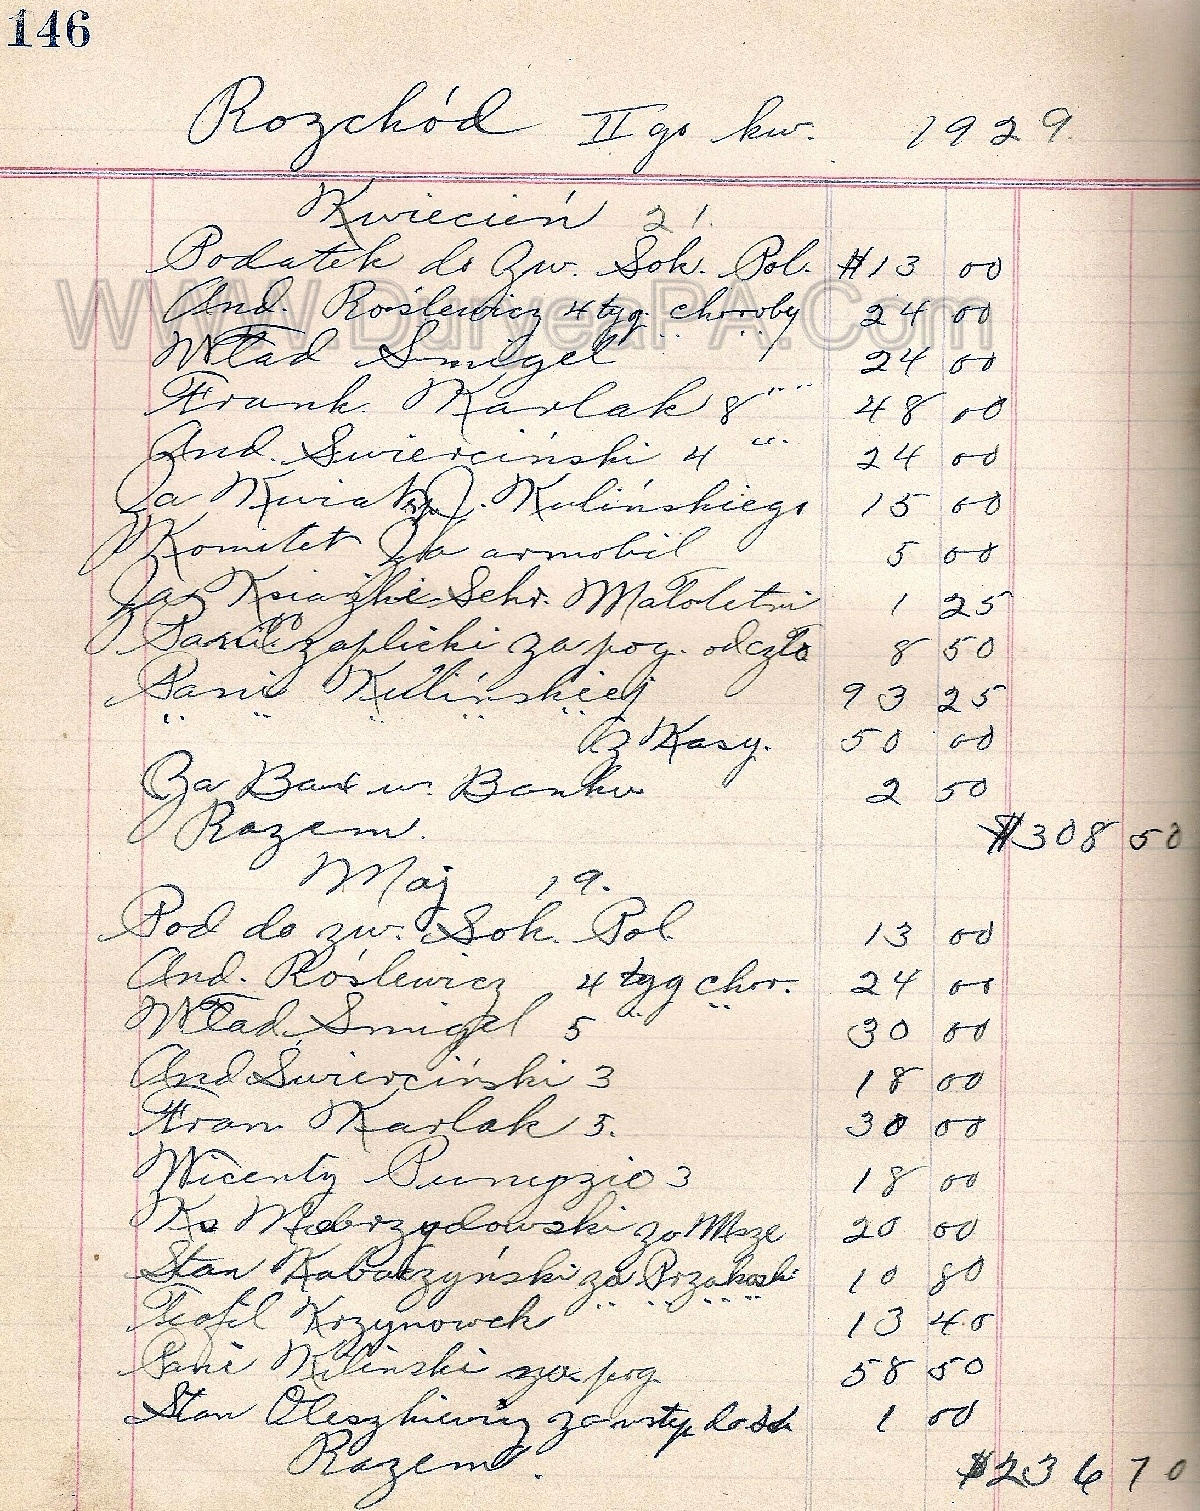 146
Rozchód IIgo kw. 1929
Kwiecień 21.
Podatek do Zw. Sok. Pol. $13 00
And. Roślewicz 4 tyg. choroby 24 00
Wład Smigel " " 24 00
Frank. Karlak 8 " " 48 00
And. Swierciński 4 " " 24 00
Za Kwiaty J. Kulińskiego 15 00
Komitet Za armobil 5 00
Za Ksiażke Sekr. Małoletni 1 25
Pani Czaplicki za pog. od czło 8 50
Pani Kulińskiej 93 25
" " " " " z Kasy. 50 00
Za Bax w. Banku 2 50
Razem. $308 50
Maj 19.
Pod do zw. Sok. Pol 13 00
And. Roślewicz 4 tyg chor. 24 00
Wład Smigel 5 " " 30 00
And Swierciński 3 18 00
Fran Karlak 5. 30 00
Wicenty 3 18 00
Ks za Msze 20 00
Stan Kabaczyński za Przakaski 10 80
Teofil Krzynowek " " " " 13 40
Pani Kilinski za pog 58 50
Stan Oleszkiewicz za wstp do 1 00
Razem. $236 70
WWW.DuryeaPA.Com